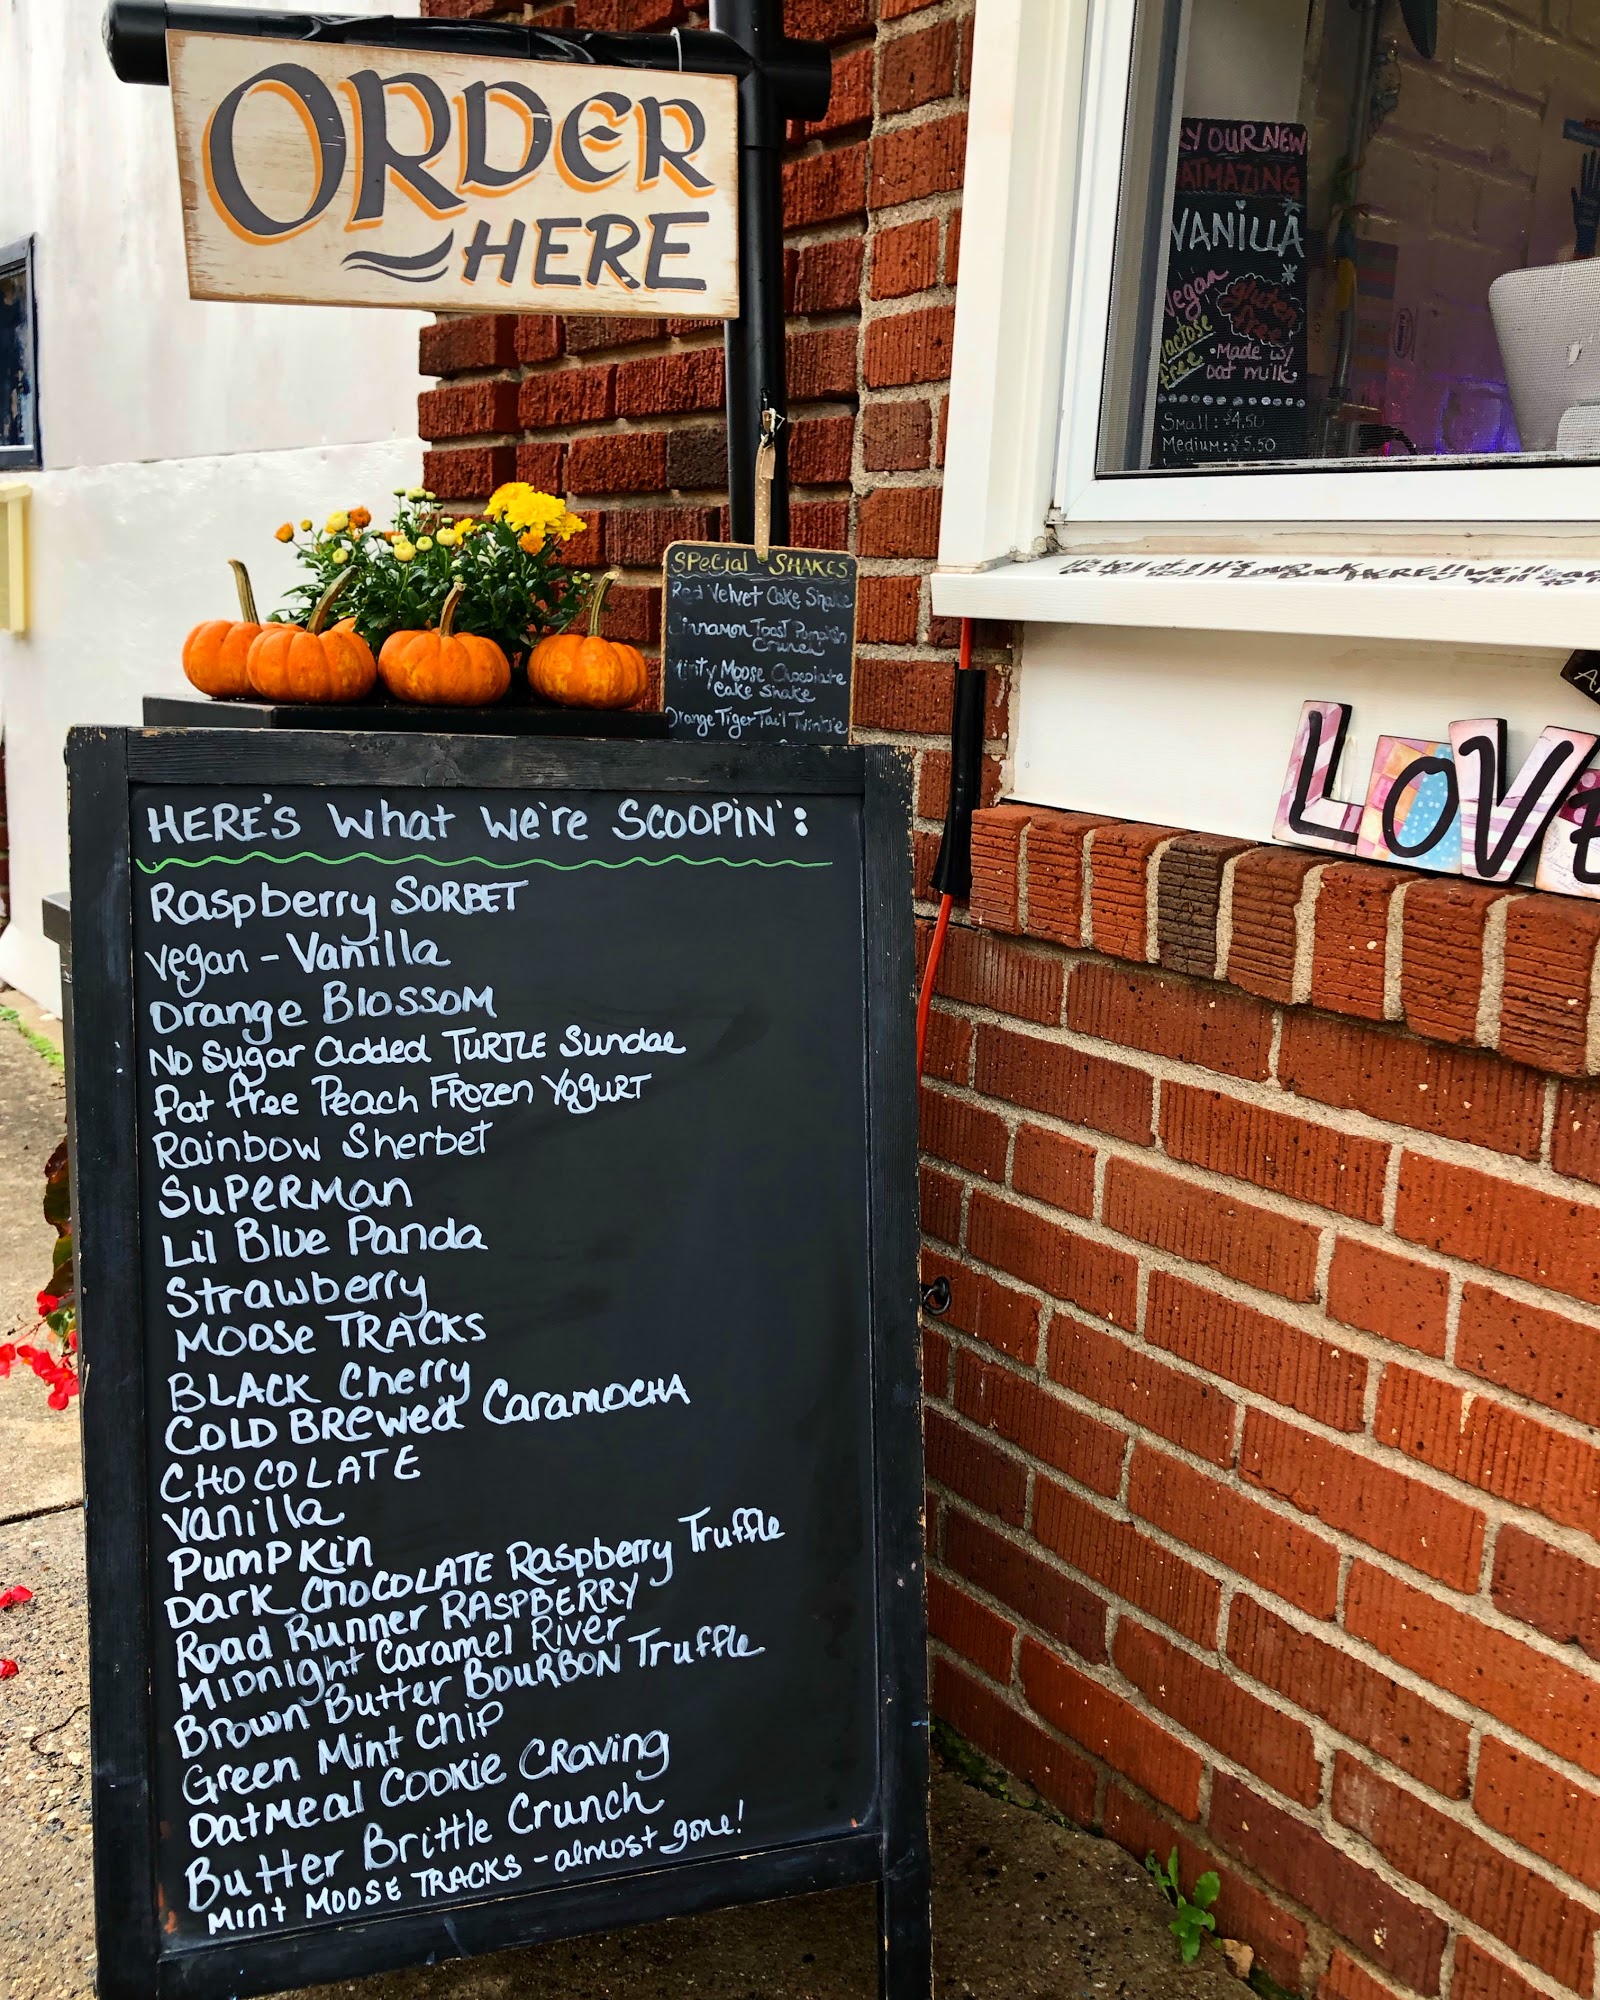 ORDER
HERE
RY OUR NEW
ATMAZING
VANILLA
Vegan
gluten
free
lactose
free
• Made w/
oat milk.
Small: $4.50
Medium: $5.50
Special SHAKES
Red Velvet Cake Shake
Cinnamon Toast Pumpkin
Crunch
Minty Moose Chocolate
Cake Shake
Orange Tiger Tail Twinkie
LOVE
HERE'S What We're SCOOPIN':
Raspberry SORBET
Vegan - Vanilla
Orange Blossom
No Sugar Added TURTLE Sundae
Fat Free Peach Frozen Yogurt
Rainbow Sherbet
SuperMan
Lil Blue Panda
Strawberry
MOOSe TRACKS
BLACK Cherry
COLD BRewed CaramOCHA
CHOCOLATE
Vanilla
PumPKin
Dark CHOCOLATE Raspberry Truffle
Road Runner RASPBERRY
MIDnight Caramel River
Brown Butter BOURBON Truffle
Green Mint Chip
OatMeal COOKie CRaving
Butter Brittle Crunch
Mint MOOSE TRACKS - almost gone!